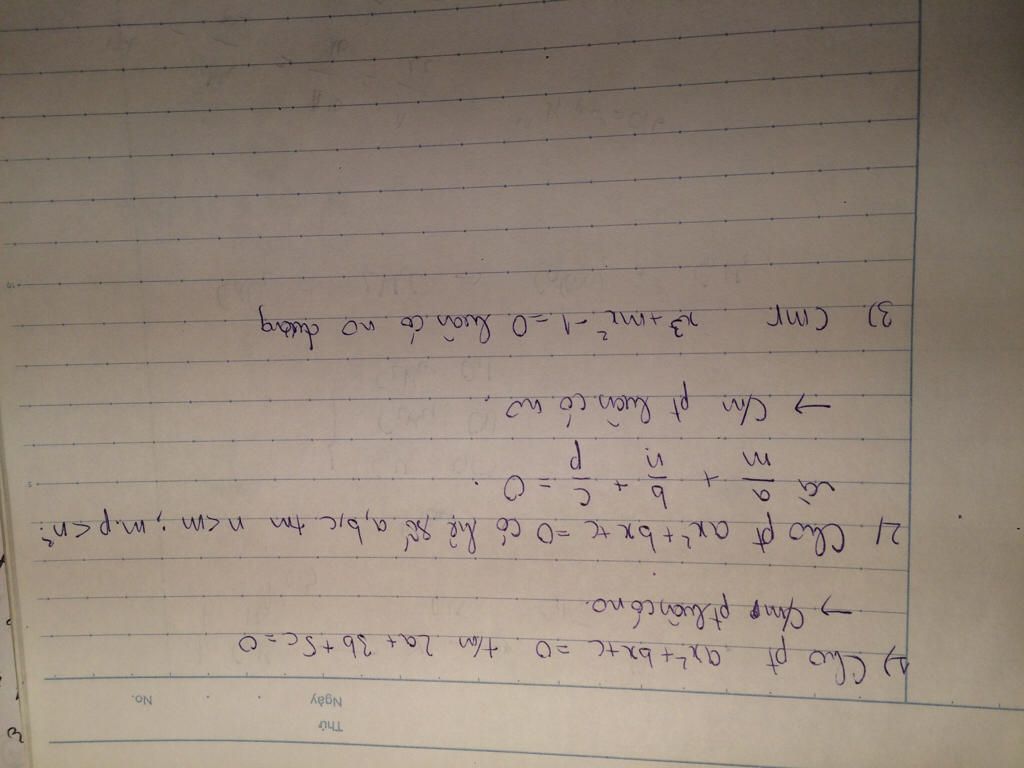 Thứ
Ngày No.
1) Cho pt ax² + bx + c = 0 t/m 2a + 3b + 5c = 0
→ C/m pt luôn có no.
2) Cho pt ax² + bx + c = 0 có hệ số a, b, c tm n < m ; m.p < n².
và a/m + b/n + c/p = 0.
→ C/m pt luôn có no.
3) Cmr x³ + mx² - 1 = 0 luôn có no dương